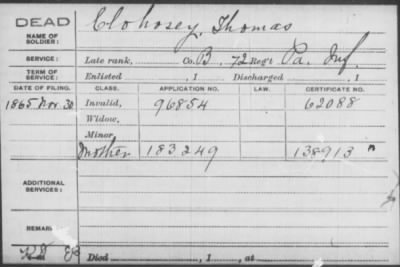 DEAD
NAME OF SOLDIER: Clohosey, Thomas
SERVICE: Late rank, Co. B, 72 Reg't Pa. Inf.
TERM OF SERVICE: Enlisted , 1 Discharged , 1
DATE OF FILING. CLASS. APPLICATION NO. LAW. CERTIFICATE NO.
1865 Nov. 30 Invalid, 96854 62088
Widow,
Minor,
Mother 183249 138913
ADDITIONAL SERVICES:
REMARKS:
Died , 1 , at